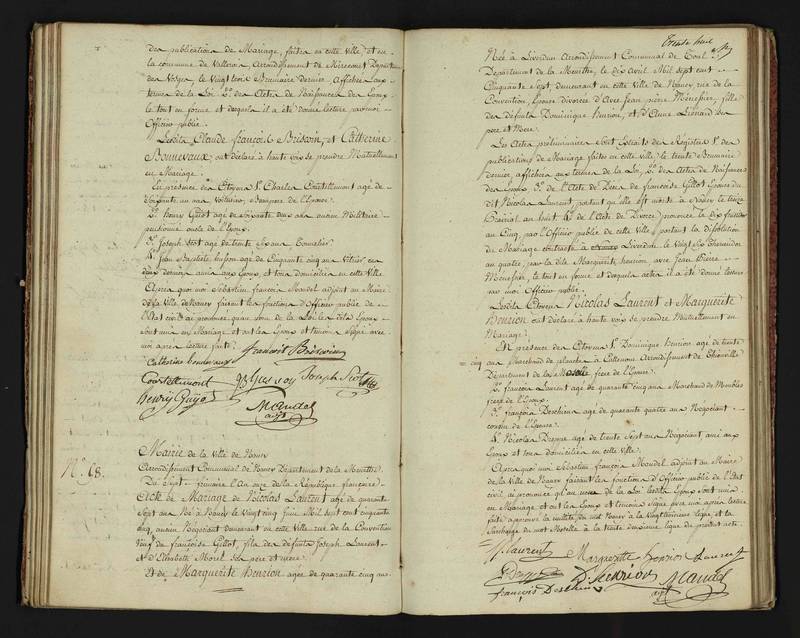 des publications de Mariage, faites en cette ville, et en
la commune de Valleroin, arrondissement de Mirecourt Département
des Vosges, le vingt trois Brumaire dernier, affichées aux
termes de la Loi. 2.° des Actes de Naissances des Epoux
le tout en forme et desquels il a été donné lecture par moi
Officier public.
Lesdits Claude françois Briscoin, et Catherine
Bonnevaux ont déclaré à haute voix se prendre Mutuellement
en Mariage.
En présence des Citoyens 1.° Charles Courtellemont agé de
Soixante un ans Voiturier, de l'Epouse.
2.° henry Guiot agé de soixante deux ans ancien Militaire
pensionné oncle de l'Epoux.
3.° Joseph Scot agé de trente six ans Tonnelier.
4.° Jean Baptiste husson agé de Cinquante cinq ans Vitrier, ces
deux derniers amis aux Epoux, et tous domiciliés en cette ville
Après quoi moi Sébastien françois Mandel adjoint au Maire
de la Ville de Nancy faisant les fonctions d'Officier public de
l'Etat civil, ai prononcé qu'au nom de la Loi lesdits Epoux
sont unis en Mariage et ont les Epoux et témoins signé avec
moi après lecture faite.
Catherine bonnevaux françois Briscoin
Courtellemont Joseph Scot
henry Guyot
Mandel
adjt
N.° 68.
Mairie de la Ville de Nancy
Arrondissement Communal de Nancy Département de la Meurthe.
Du Sept frimaire l'an onze de la République française
Acte de Mariage de Nicolas Laurent agé de quarante
Sept ans Né à Nancy le Vingt cinq Juin Mil sept cent cinquante
cinq, ancien Négociant demeurant en cette Ville rue de la Convention
Veuf de françoise Gillot, fils des défunts Joseph Laurent
et d'Elisabeth Morel ses père et mère.
Et de Marguerite henrion agée de quarante cinq ans
Trente huit
Née à Liverdun Arrondissement Communal de Toul
Département de la Meurthe, le dix Avril Mil sept cent
Cinquante Sept demeurant en cette Ville de Nancy, rue de la
Convention, Epouse divorcée d'avec Jean pierre Ménessier, fille
des défunts Dominique henrion, et d'Anne Liénard ses
père et Mère.
Les Actes préliminaires sont Extraits des Registres 1.° des
publications de Mariage faites en cette ville, le trente Brumaire
dernier, affichées aux termes de la Loi, 2.° des Actes de Naissances
des Epoux 3.° de l'Acte de Décès de françoise Gillot Epouse du
dit Nicolas Laurent, portant qu'elle est morte à Nancy le treize
Prairial an huit 4.° de l'Acte de Divorce prononcé le dix frimaire
an Cinq, par l'Officier public de cette Ville portant la dissolution
du Mariage contracté à Liverdun, le Vingt Six thermidor
an quatre, par la dite Marguerite henrion, avec Jean Pierre
Ménessier, le tout en forme et desquels actes il a été donné lecture
par moi Officier public.
Lesdits Citoyens Nicolas Laurent et Marguerite
henrion ont déclaré à haute voix se prendre Mutuellement en
Mariage.
En présence des Citoyens 1.° Dominique henrion agé de trente
cinq ans Marchand de planches à Cattenom Arrondissement de Thionville
Département de la Moselle frère de l'Epouse.
2.° françois Laurent agé de quarante cinq ans Marchand de Meubles
frère de l'Epoux.
3.° françois Deschiens agé de quarante quatre ans Négociant
cousin de l'Epouse.
4.° Nicolas agé de trente Sept ans Négociant ami aux
Epoux et tous domiciliés en cette ville.
Après quoi moi Sébastien françois Mandel adjoint au Maire
de la Ville de Nancy faisant les fonctions d'Officier public de l'Etat
civil, ai prononcé qu'au nom de la Loi lesdits Epoux sont unis
en Mariage, et ont les Epoux et témoins signé avec moi après lecture
faite approuvé la nullité du mot Nancy à la Vingtième ligne et la
Surcharge du mot Moselle à la trente deuxième ligne du présent acte.
N. Laurent Marguerite henrion Laurent
D. henrion Mandel
françois Deschiens adjt